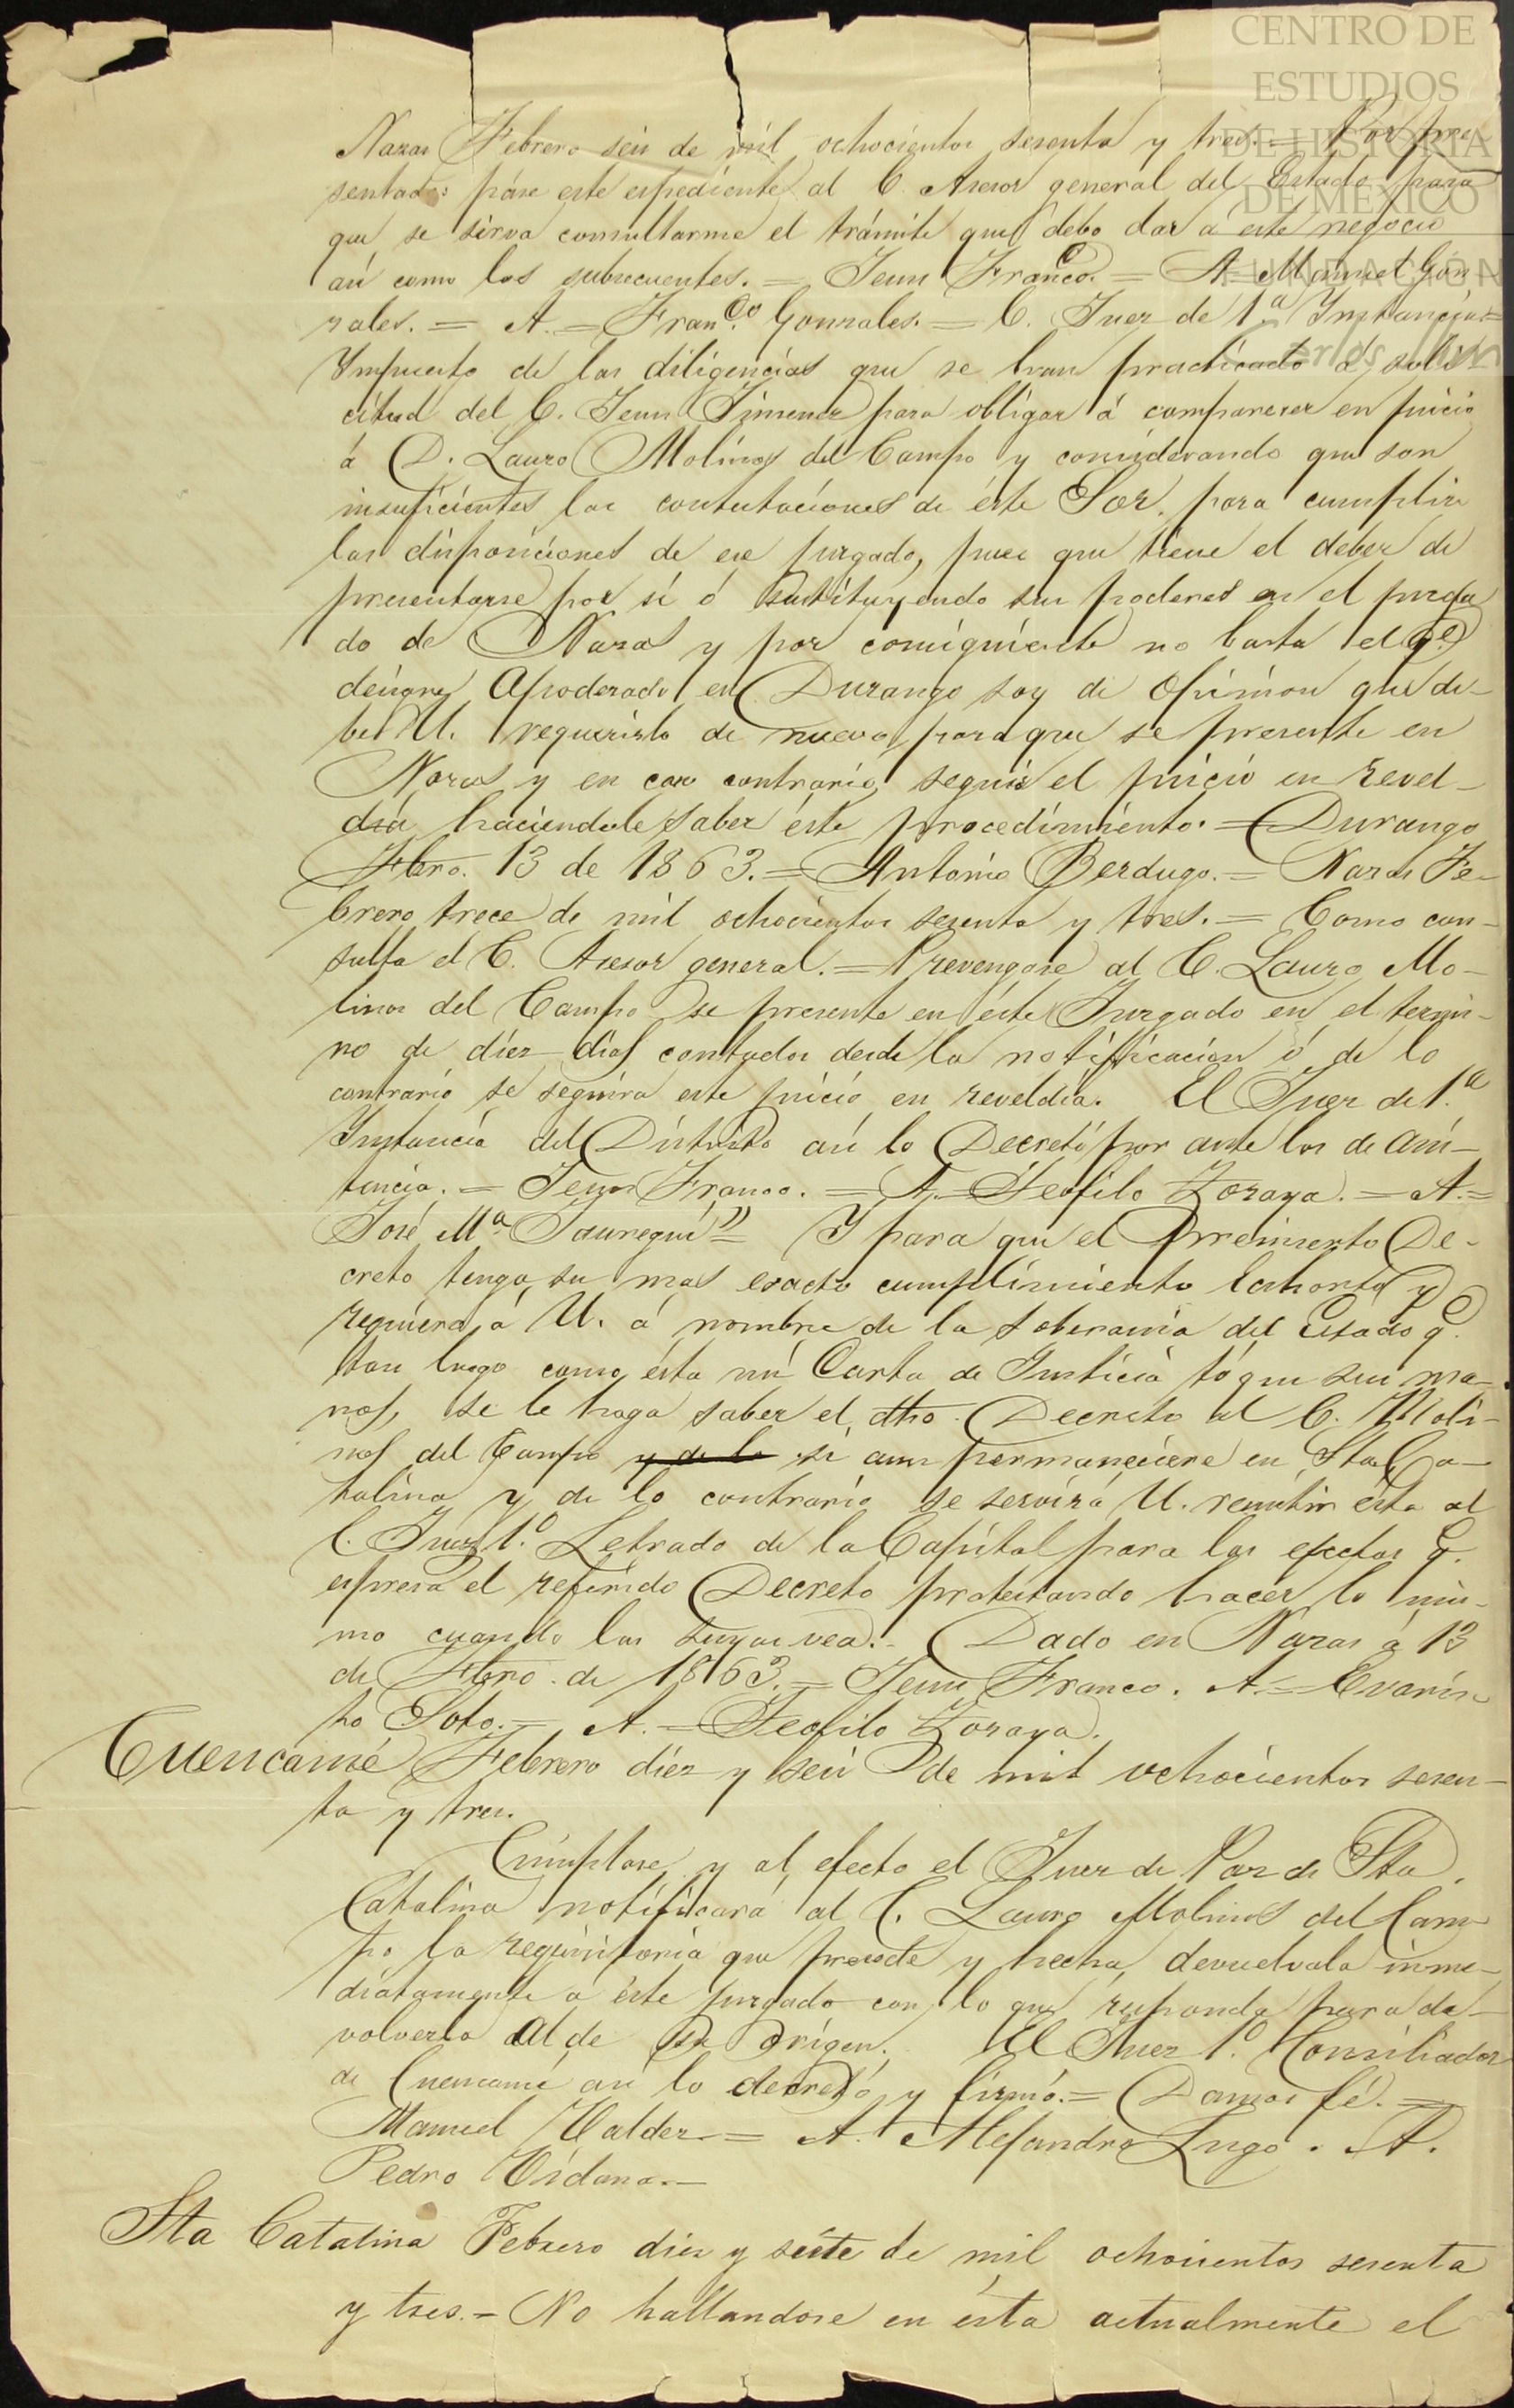 CENTRO DE
ESTUDIOS
DE HISTORIA
DE MÉXICO
FUNDACIÓN
Nazas Febrero seis de mil ochocientos sesenta y tres. = Por pre-
sentado: páse este espediente al C. Asesor general del Estado para
que se sirva consultarme el trámite que debo dar á este negocio
asi como los subsecuentes. = Jesus Franco. = A. Manuel Gon
zales. = A. = Franco. Gonzales. = C. Juez de 1.a Ynstancia =
Ympuesto de las diligencias que se han practicado a soli
citud del C. Jesus Jimenez para obligar á comparecer en juicio
á D. Lauro Molinos del Campo y considerando que son
insuficientes las contestaciones de éste Sor. para cumplir
las disposiciones de ese juzgado, pues que tiene el deber de
presentarse por si ó sustituyendo sus poderes en el juzga
do de Nazas y por consiguiente no basta el q.e
designe Apoderado en Durango soy de Opinion que de-
be U. requerirlo de nuevo para que se presente en
Nazas y en caso contrario, seguir el juicio en revel-
dia haciendole saber éste procedimiento. = Durango
Fbro. 13 de 1863. = Antonio Berdugo. = Nazas Fe-
brero trece de mil ochocientos sesenta y tres. = Como con-
sulta el C. Asesor general. = Prevengase al C. Lauro Mo-
linos del Campo se presente en éste Juzgado en el termi-
no de diez dias contados desde la notificacion ó de lo
contrario se seguira este juicio en reveldia. El Juez de 1.a
Ynstancia del Distrito asi lo Decretó por ante los de asis-
tencia. = Jesus Franco. = A. = Teofilo Zoraya. = A. =
José Ma. Jauregui" = Y para que el preinserto De-
creto tenga su mas esacto cumplimiento Exhorta y
requiera á U. á nombre de la soberania del Estado q.e
tan luego como ésta mi Carta de Justicia tóque sus ma-
nos, se le haga saber el dho. Decreto al C. Moli-
nos del Campo y de lo si aun permaneciere en Sta. Ca-
talina y de lo contrario se servirá U. remitir ésta al
C. Juez 1.o Letrado de la Capital para los efectos q.e
espresa el referido Decreto protestando hacer lo mis-
mo cuando las suyas vea. - Dado en Nazas á 13
de Fbro. de 1863. = Jesus Franco. A. = Evaris
to Soto. = A. = Teofilo Zoraya.
Cuencamé Febrero diez y seis de mil ochocientos sesen-
ta y tres.
Cúmplase y al efecto el Juez de Paz de Sta.
Catalina notificará al C. Lauro Molinos del Cam
po la requisitoria que precede y hecha, devuelvala inme-
diatamente a éste juzgado con lo que responda para de-
volverla al de su origen. El Juez 1.o Conciliador
de Cuencamé asi lo decretó y firmó. = Damos fé. =
Manuel Valdez = A. Alejandro Lugo. A.
Pedro Ordana. =
Sta Catalina Febrero diez y siete de mil ochocientos sesenta
y tres. = No hallandose en ésta actualmente el